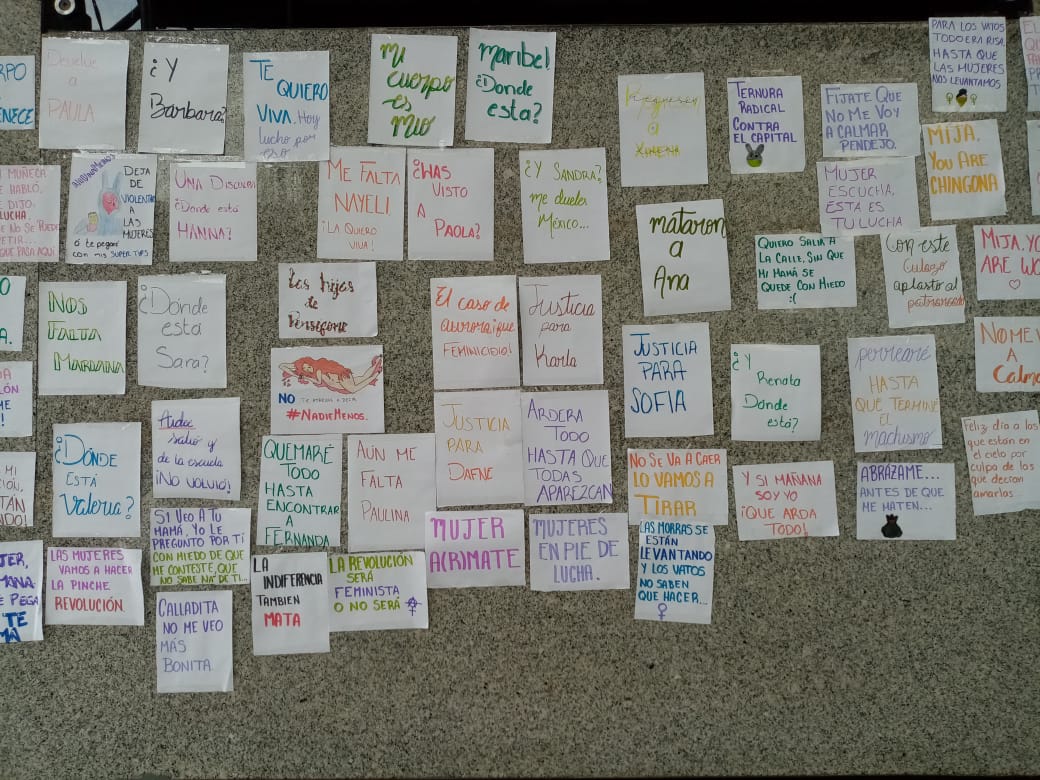 RPO
ES
ENECE
Devuelve
a
PAULA
¿Y
Barbara?
TE
QUIERO
VIVA. Hoy
lucho por
eso
mi
cuerpo
es
mio
maribel
¿Donde
esta?
Regresen
a
XIMENA
TERNURA
RADICAL
CONTRA
EL CAPITAL
FÍJATE QUE
NO ME VOY
A CALMAR
PENDEJO.
PARA LOS VATOS
TODO ERA RISA,
HASTA QUE
LAS MUJERES
NOS LEVANTAMOS
MIJA,
YOU ARE
CHINGONA
MUÑECA
HABLÓ,
E DIJO:
LUCHA,
E NO SE PUEDE
PETIR...
QUE PASA AQUÍ
DEJA DE
VIOLENTAR
A
LAS
MUJERES
ó te pegaré
con mis SUPER TAPS
UNA DISCULPA
¿Donde está
HANNA?
ME FALTA
NAYELI
¡LA QUIERO
VIVA!
¿HAS
VISTO
A
PAOLA?
¿Y SANDRA?
me duele
México...
mataron
a
Ana
MUJER
ESCUCHA,
ESTA ES
TU LUCHA
QUIERO SALIR A
LA CALLE, SIN QUE
MI MAMÁ SE
QUEDE CON MIEDO
:(
Con este
culazo
aplasto al
patriarcado
MIJA, YO
ARE WO
NOS
FALTA
MARIANA
¿Donde
está
Sara?
Las hijas
de
Perséfone
NO TE ATREVAS A DECIR
#NADIEMENOS.
El caso de
aurora fue
FEMINICIDIO!
Justicia
para
Karla
JUSTICIA
PARA
SOFIA
¿Y
Renata
Donde
está?
perrearé
HASTA
QUE TERMINE
EL
machismo
NO ME V
A
Calma
¿DÓNDE
ESTÁ
Valeria?
salió y
de la escuela
¡NO VOLVIÓ!
QUEMARÉ
TODO
HASTA
ENCONTRAR
A
FERNANDA
AÚN ME
FALTA
PAULINA
JUSTICIA
PARA
DAFNE
ARDERA
TODO
HASTA QUE
TODAS
APAREZCAN
NO SE VA A CAER
LO VAMOS A
TIRAR
Y SI MAÑANA
SOY YO
¡QUE ARDA
TODO!
ABRÁZAME...
ANTES DE QUE
ME MATEN...
Feliz día a las
que están en
el cielo por
culpa de los
que decían
amarlas...
LAS MUJERES
VAMOS A HACER
LA PINCHE
REVOLUCIÓN.
SI VEO A TU
MAMÁ, YO LE
PREGUNTO POR TÍ
CON MIEDO DE QUE
ME CONTESTE, QUE
NO SABE NA' DE TI...
CALLADITA
NO ME VEO
MÁS
BONITA
LA
INDIFERENCIA
TAMBIEN
MATA
LA REVOLUCIÓN
SERÁ
FEMINISTA
O NO SERÁ
MUJER
ACRIMATE
MUJERES
EN PIE DE
LUCHA.
LAS MORRAS SE
ESTÁN
LEVANTANDO
Y LOS VATOS
NO SABEN
QUE HACER...